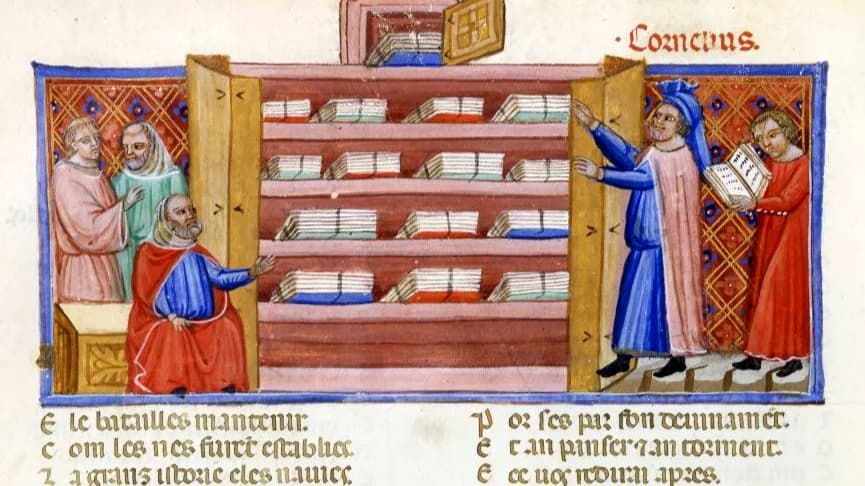 · Cornelius.
E le batailles mantenir.
C om les nes furẽt establies
L a granz istorie eles nauies
P or ses par son
E t an panser ⁊ an torment.
E ce uos redirai apres.